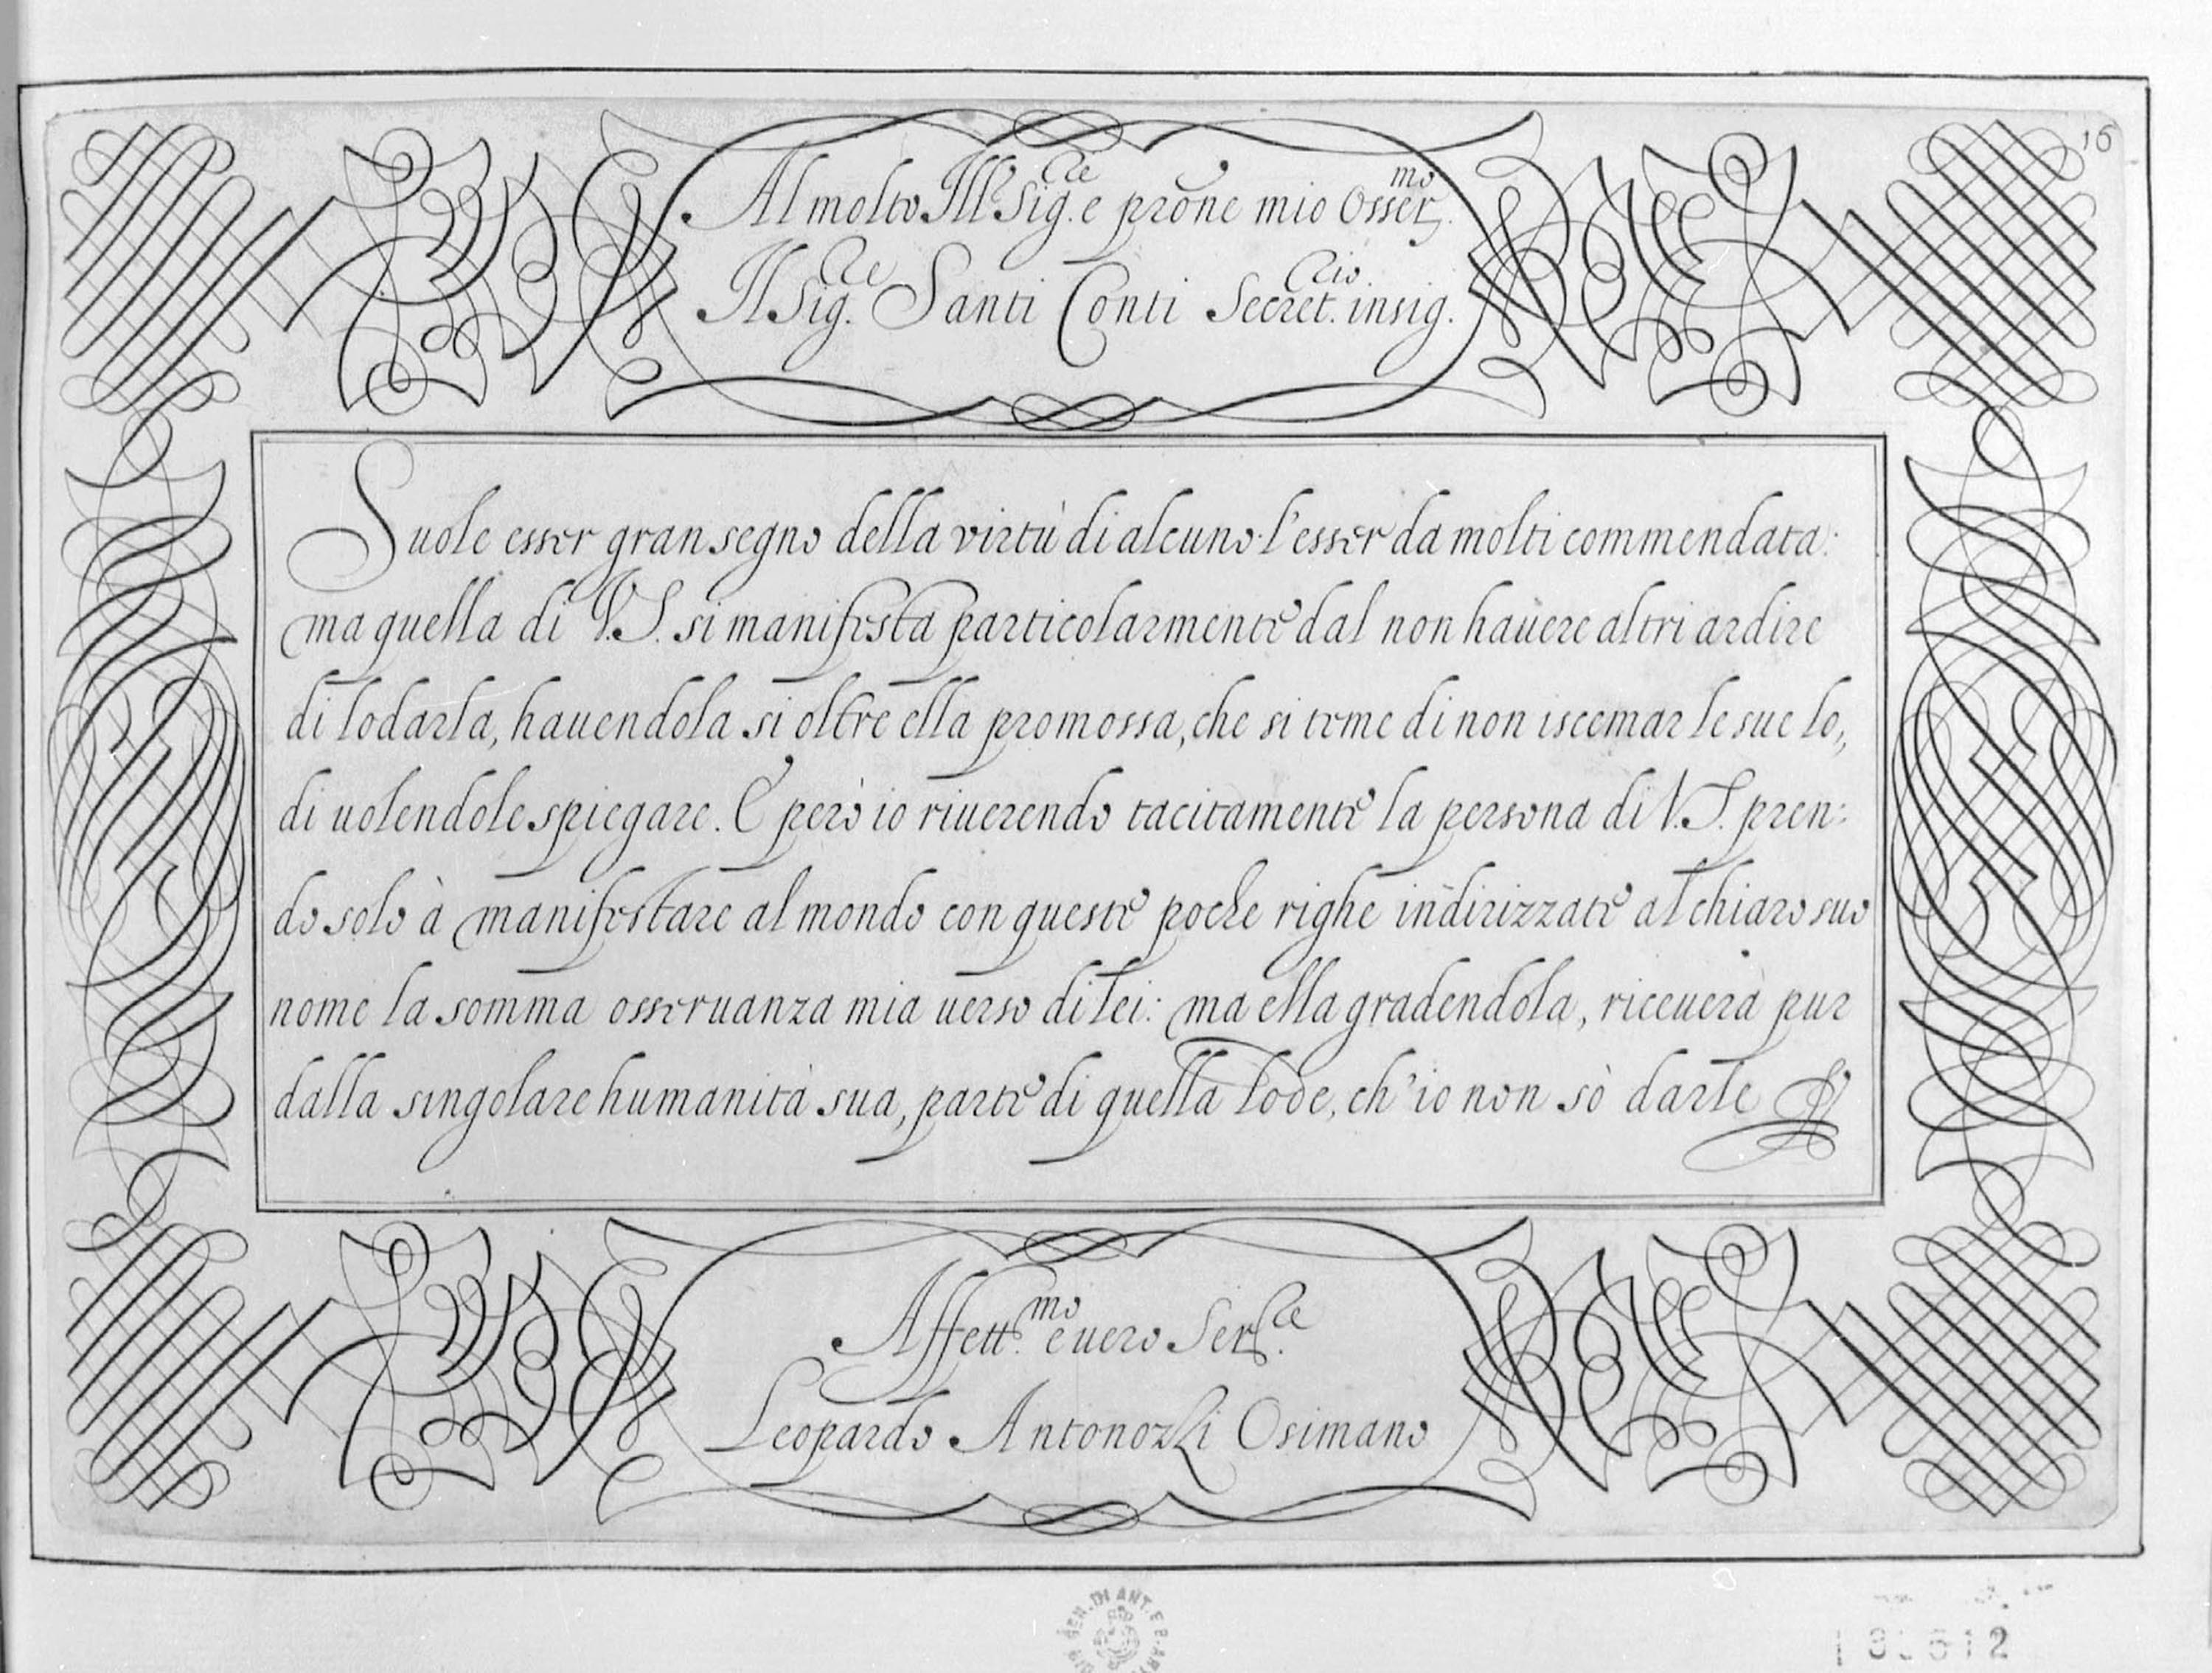 16
Al molto Ill.re Sig.re e prone mio Osser.mo
Il Sig.re Santi Conti Secret.rio insig.
Suole esser gran segno della virtù di alcuno l'esser da molti commendata:
ma quella di V.S. si manifesta particolarmente dal non hauere altri ardire
di lodarla, hauendola si oltre ella promossa, che si teme di non iscemar le sue lo,,
di uolendole spiegare. E però io riuerendo tacitamente la persona di V.S. pren:
do solo à manifestare al mondo con queste poche righe indirizzate al chiaro suo
nome la somma osseruanza mia uerso di lei: ma ella gradendola, riceuerà pur
dalla singolare humanità sua, parte di quella lode, ch'io non sò darle
Affett.mo e uero Ser.re
Leopardo Antonozzi Osimano